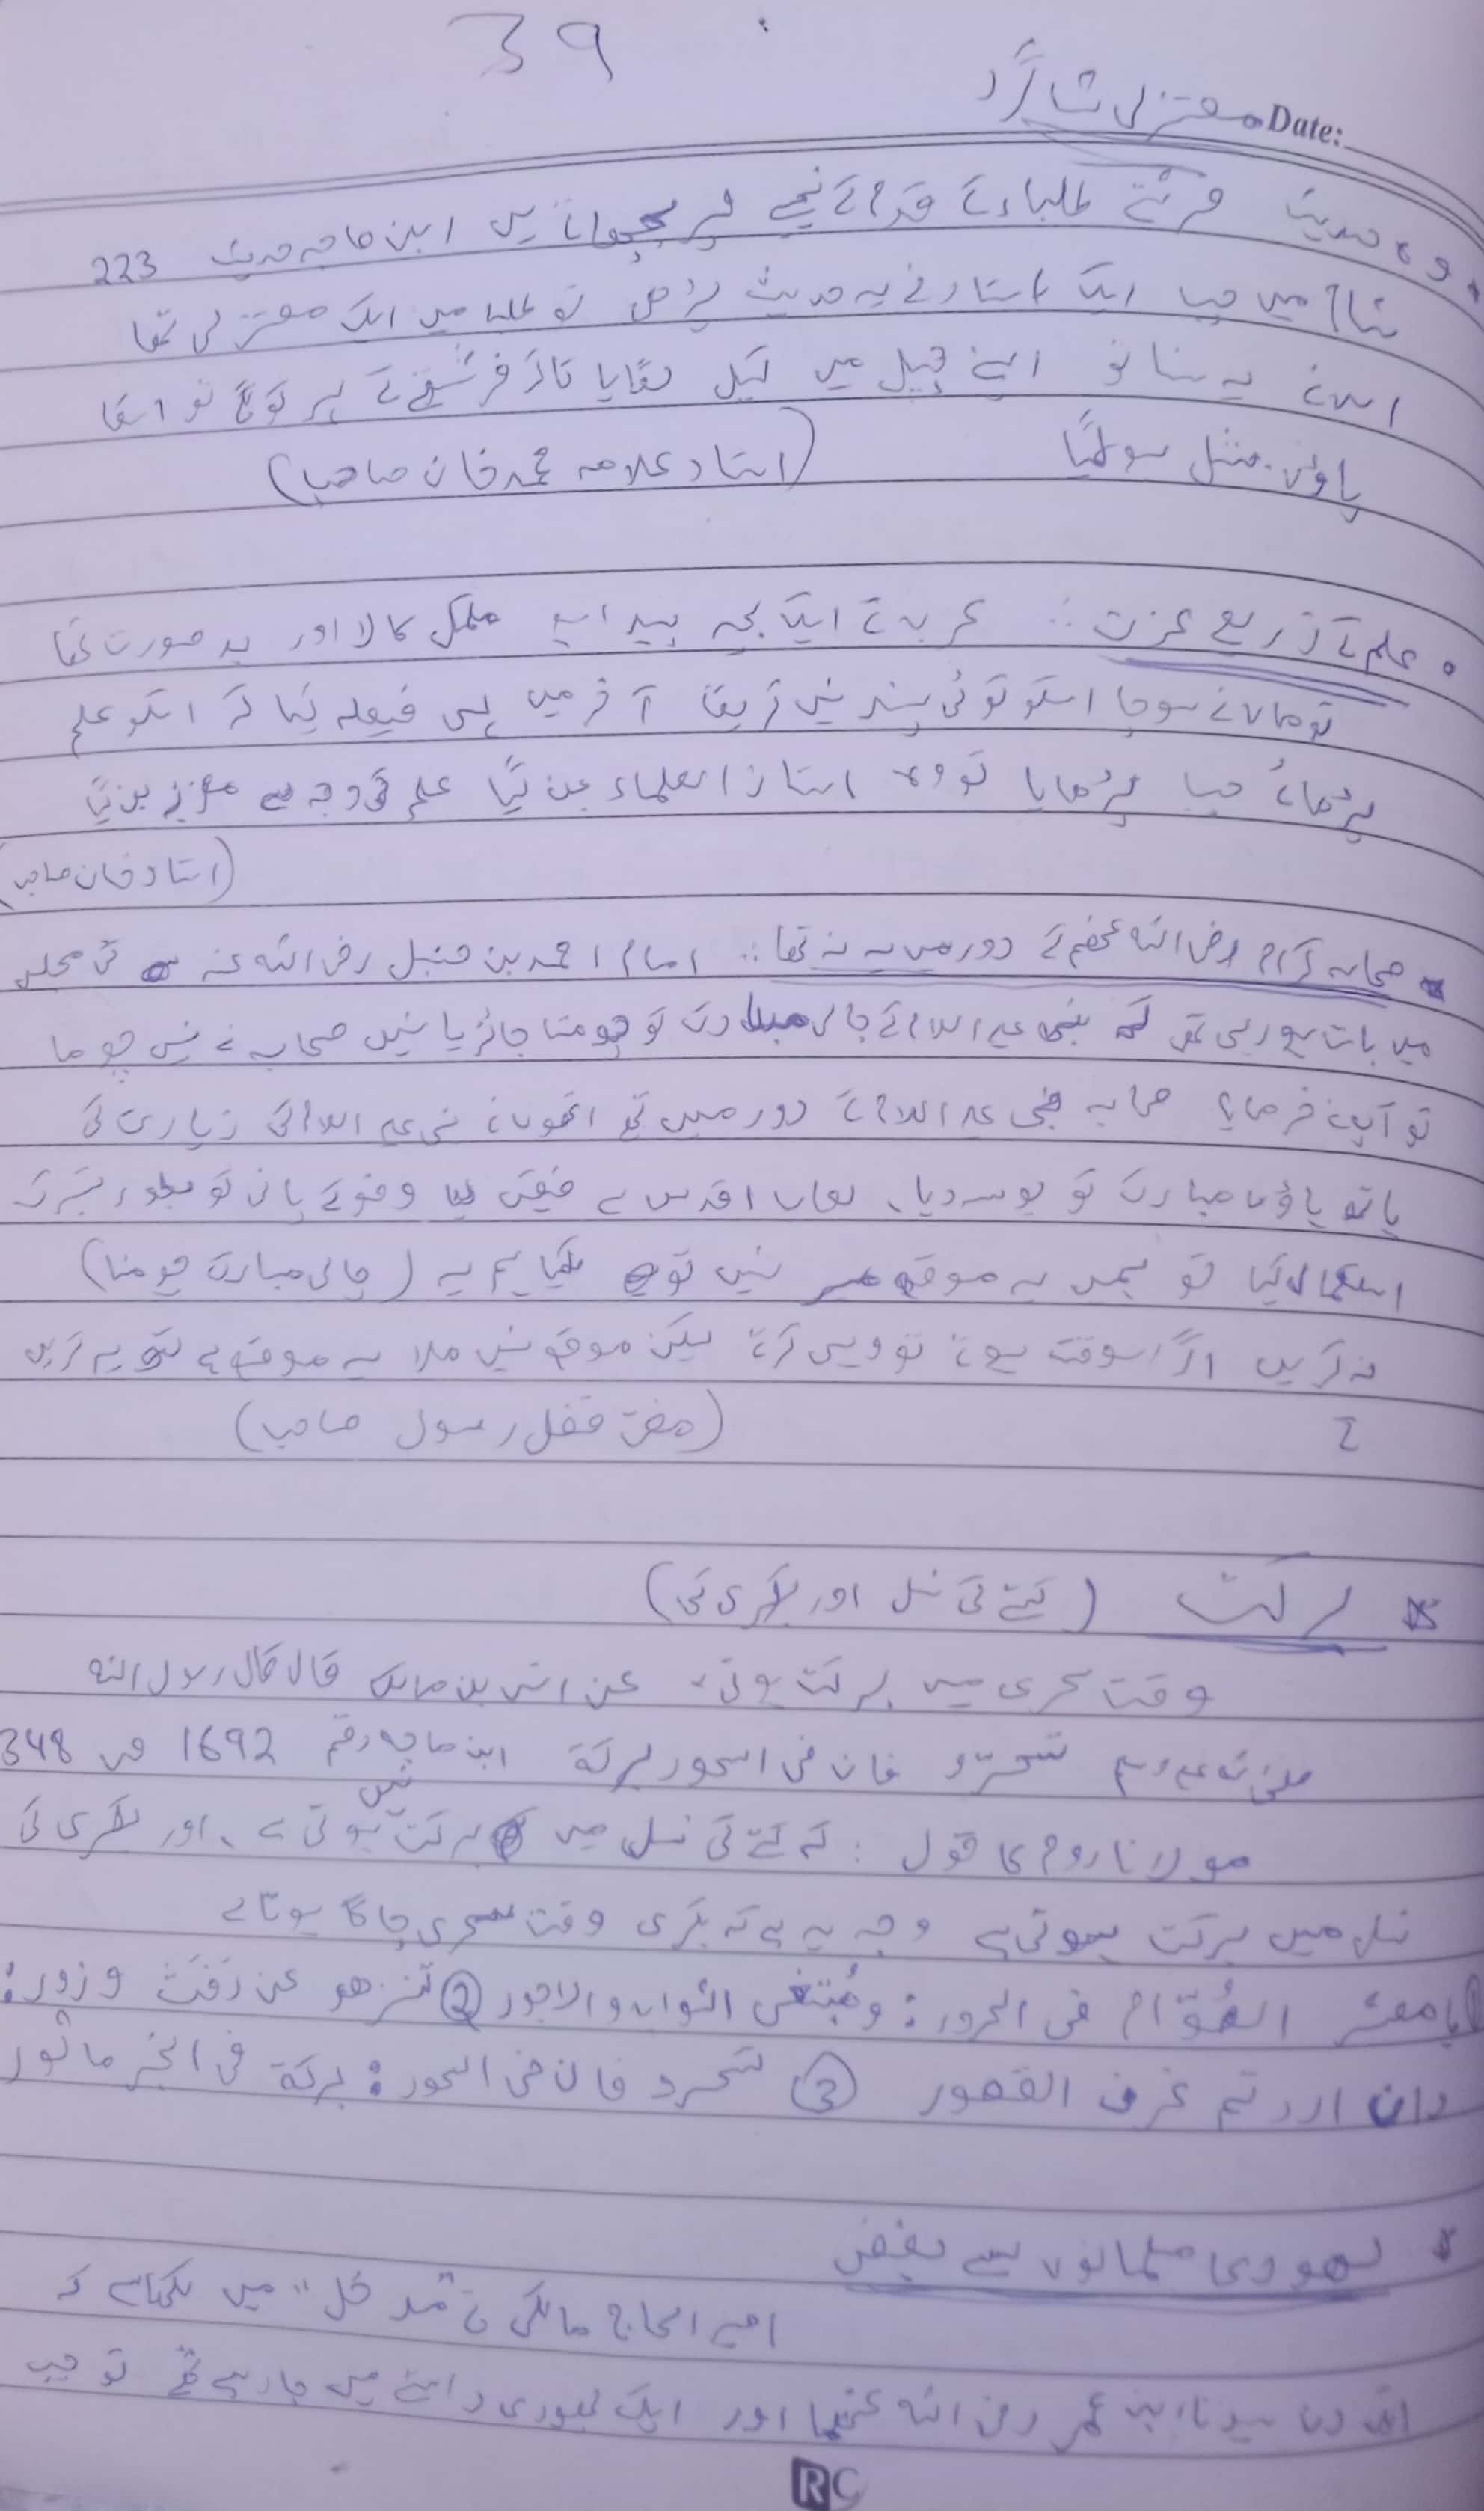 39
Date:
معتزلی شاگرد
وہ حدیث فرشتے طلباء کے قدم کے نیچے پر بچھاتے ہیں ابن ماجہ حدیث 223
شام میں جب ایک استاد نے یہ حدیث پڑھی تو طلبا میں ایک معتزلی تھا
اسنے یہ سنا تو اپنے چپل میں کیل لگایا تاکہ فرشتے کے پر تو اسکا
پاؤں سو گیا (استاد علامہ محمد خان صاحب)
علم کے ذریعے عزت :: عرب کے ایک بچہ پیدا مکمل کالا اور بد صورت تھا
تو ماں نے سوچا اسکو کوئی پسند نہیں کریگا آخر میں یہی فیصلہ کیا کہ اسکو علم
پڑھائے جب پڑھایا تو وہ استاذ العلماء بن گیا علم کی وجہ سے معزز بن گیا
(استاد خان صاحب)
صحابہ کرام رضی اللہ عنھم کے دور میں یہ نہ تھا :: امام احمد بن حنبل رضی اللہ عنہ کی مجلس
میں بات ہو رہی تھی کہ نبی علیہ السلام کے جالی مبارک کو چومنا جائز یا نہیں صحابہ نے نہیں چوما
تو آپنے فرمایا صحابہ نبی علیہ السلام کے دور میں تھے انھوں نے نبی علیہ السلام کی زیارت کی
ہاتھ پاؤں مبارک کو بوسہ دیا، لعاب اقدس سے فیض لیا وضو کے پانی کو بطور تبرک
استعمال کیا تو ہمیں یہ موقع نہیں تو کیا ہم یہ (جالی مبارک چومنا)
نہ کریں اگر اسوقت ہوتے تو وہی کرتے لیکن موقع نہیں ملا یہ موقع ہے تو یہ کریں
گے (مفتی فضل رسول صاحب)
برکت (کتے کی نسل اور بکری کی)
وقت سحری میں برکت ہوتی ہے عن انس بن مالک قال قال رسول اللہ
صلی اللہ علیہ وسلم تسحّرو فان فی السحور برکة ابن ماجہ رقم 1692 ص 348
مولانا روم کا قول : کہ کتے کی نسل میں برکت نہیں ہوتی ہے، اور بکری کی
نسل میں برکت ہوتی ہے وجہ یہ ہے کہ بکری وقت سحری جاگا ہوتا ہے
① یا معشر الصُوّام فی الحرور : ومُبتغی الثواب والاجور ② تنزھو عن رَفَث وزور :
وان اردتم غرف القصور ③ تسحرو فان فی السحور : برکة فی الخبر ماثور
یھودی مسلمانوں سے بغض
امیر الحاج مالکی نے "مدخل" میں لکھا ہے کہ
ایک دن سیدنا ابن عمر رضی اللہ عنھما اور ایک یہودی راستے میں جا رہے تھے تو جب
RC